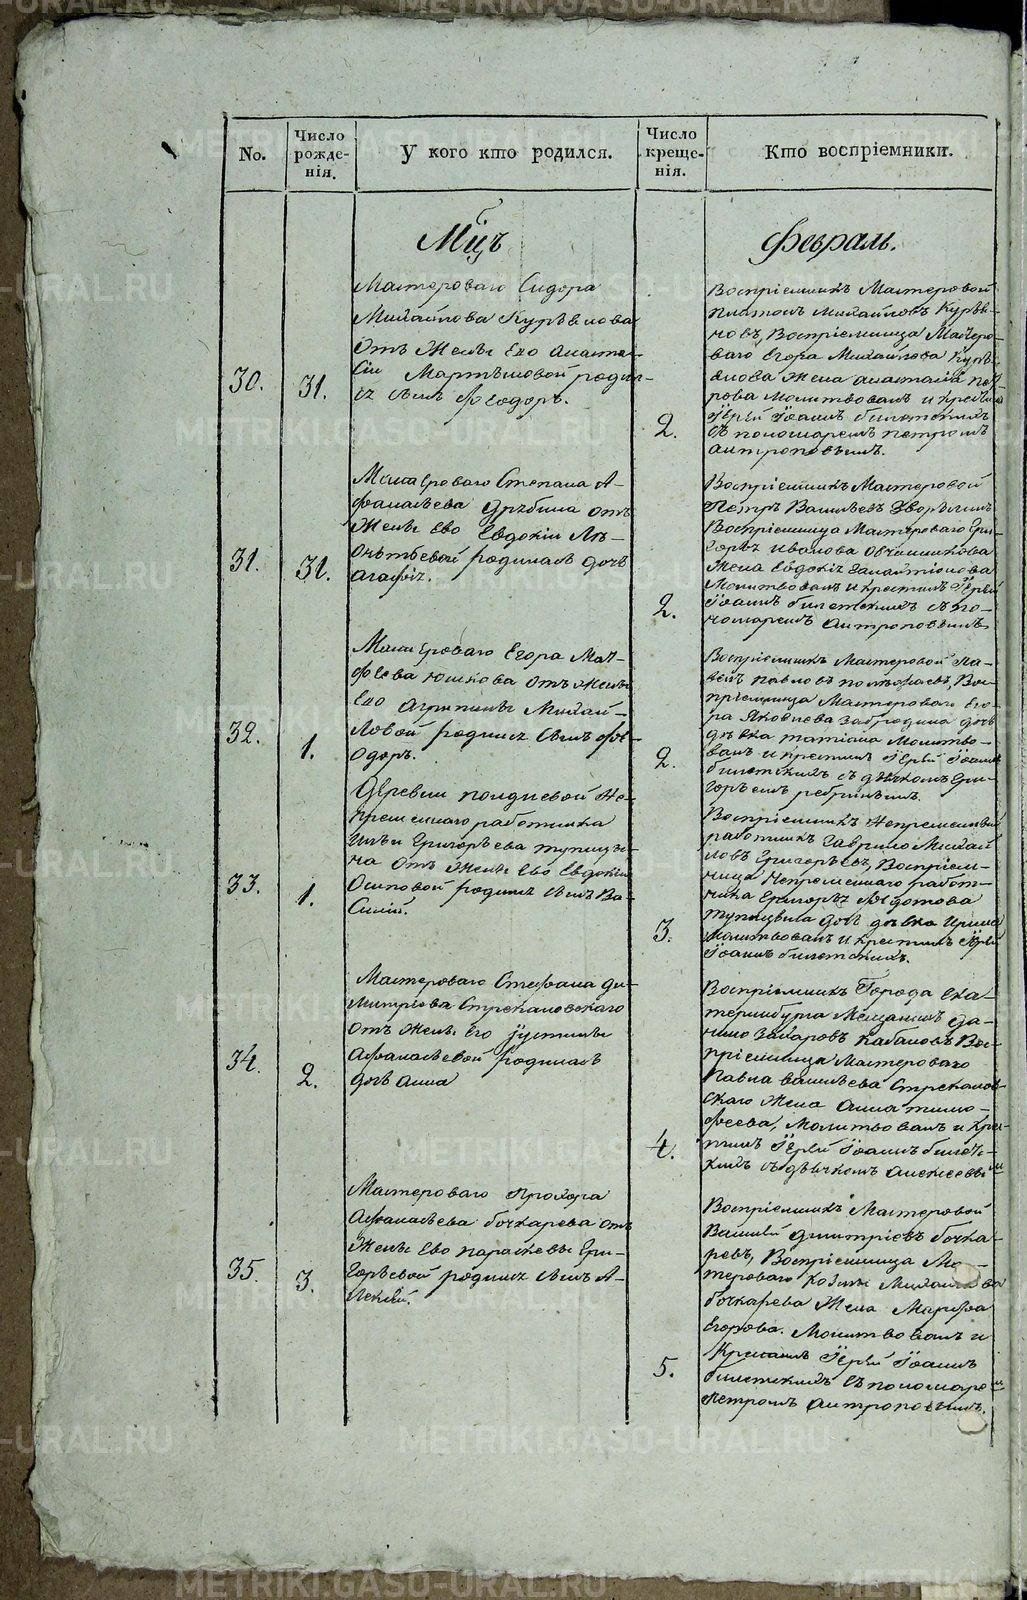 No.
Число рожде- нія.
У кого кто родился.
Число креще- нія.
Кто воспріемники.
Мцъ
Февраль.
30.
31.
Мастероваго Сидора
Михайлова
отъ жены Ево Анаста-
сіи Мартыновой родил-
ся сынъ Феодоръ.
2.
Воспріемникъ Мастеровой
Платонъ Михайловъ
Воспріемница Мастеро-
ваго Егора Михайлова
жена Анастасіа Пет-
рова Молитвовалъ и крестилъ
Іерей Іоаннъ
съ пономаремъ Петромъ
Антроповымъ.
31.
31.
Мастероваго Степана А-
фанасьева отъ
жены Ево Евдокіи Ле-
онтьевой родилась дочь
Агафія.
2.
Воспріемникъ Мастеровой
Петръ Васильевъ
Воспріемница Мастероваго Гри-
горья Иванова Овчинникова
жена Евдокія
Молитвовалъ и крестилъ Іерей
Іоаннъ съ по-
номаремъ Антроповымъ.
32.
1.
Мастероваго Егора Мат-
феева Юшкова отъ жены
Ево Агрипины Михай-
ловой родился сынъ Фе-
одоръ.
2.
Воспріемникъ Мастеровой
Павловъ Вос-
пріемница Мастероваго Его-
ра Яковлева дочь
девка Татіана Молитво-
валъ и крестилъ Іерей Іоаннъ
съ дьячкомъ Гри-
горьемъ
33.
1.
Деревни Не-
премѣннаго работника
Григорьева
отъ жены Ево Евдокіи
Осиповой родился сынъ Ва-
силій.
3.
Воспріемникъ Непременный
работникъ Гаврило Михай-
ловъ Григорьевъ, Воспріем-
ница Непременнаго работ-
ника Григорья Федотова
дочь девка Ирина
Молитвовалъ и крестилъ Іерей
Іоаннъ
34.
2.
Мастероваго Стефана Ди-
митріева Стрекаловскаго
отъ жены Его Іустины
Афанасьевой родилась
дочь Анна
4.
Воспріемникъ Города Ека-
теринбурга Мещанинъ Да-
нило Захаровъ Кабановъ Вос-
пріемница Мастероваго
Павла Васильева Стрекалов-
скаго жена Анна Тимо-
феева, Молитвовалъ и кре-
стилъ Іерей Іоаннъ
съ дьячкомъ Алексеевымъ
35.
3.
Мастероваго Прохора
Афанасьева Бочкарева отъ
жены Ево Параскевы Гри-
горьевой родился сынъ А-
лексій.
5.
Воспріемникъ Мастеровой
Василій Димитріевъ Бочка-
ревъ, Воспріемница Мас-
тероваго Козмы Михайлова
Бочкарева жена Марфа
Егорова. Молитвовалъ и
крестилъ Іерей Іоаннъ
съ пономаремъ
Петромъ Антроповымъ.
METRIKI.GASO-URAL.RU